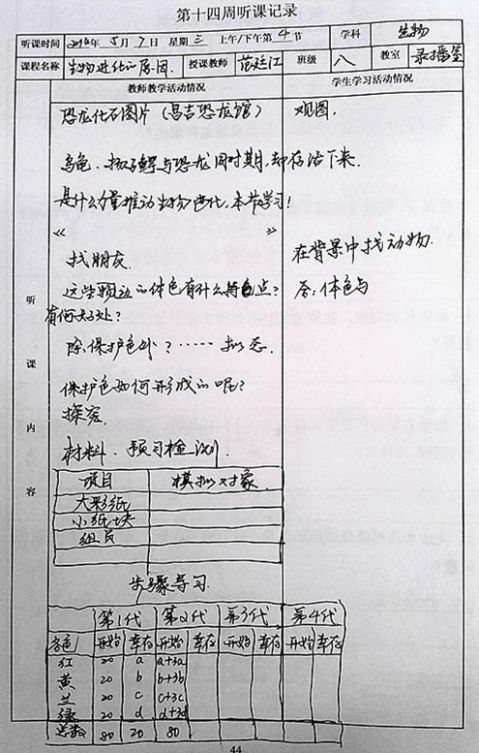 第十四周听课记录
听课时间 2014年5月7日 星期三 上午/下午第4节 学科 生物
课程名称 生物进化的原因. 授课教师 范廷江 班级 八 教室 录播室
教师教学活动情况 学生学习活动情况
恐龙化石图片（昌吉恐龙馆） 观图.
乌龟、扬子鳄与恐龙同时期,却存活下来.
是什么力量推动生物进化,本节学习!
《 》
找朋友. 在背景中找动物.
这些动物的体色有什么特点? 答:体色与
有何好处?
除保护色外?……拟态.
保护色如何形成的呢?
听课内容
探究
材料、预习检测
项目 模拟对象
大彩纸
小纸块
组员
步骤学习.
第1代 第2代 第3代 第4代
颜色 开始 幸存 开始 幸存 开始 幸存 开始 幸存
红 20 a a+3a
黄 20 b b+3b
兰 20 c c+3c
绿 20 d d+3d
总数 80 20 80
44